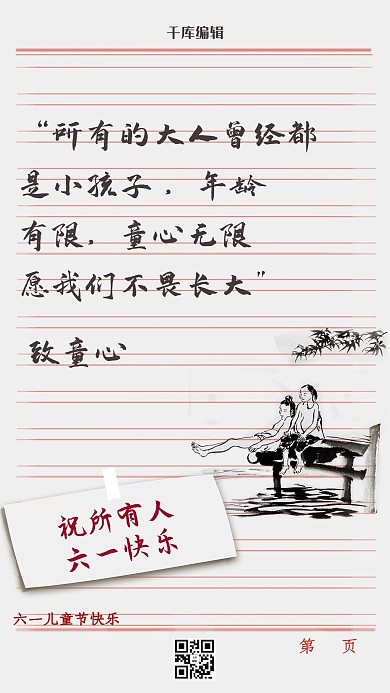 千库编辑
“所有的大人曾经都
是小孩子，年龄
有限，童心无限
愿我们不畏长大”
致童心
祝所有人
六一快乐
六一儿童节快乐
第 页